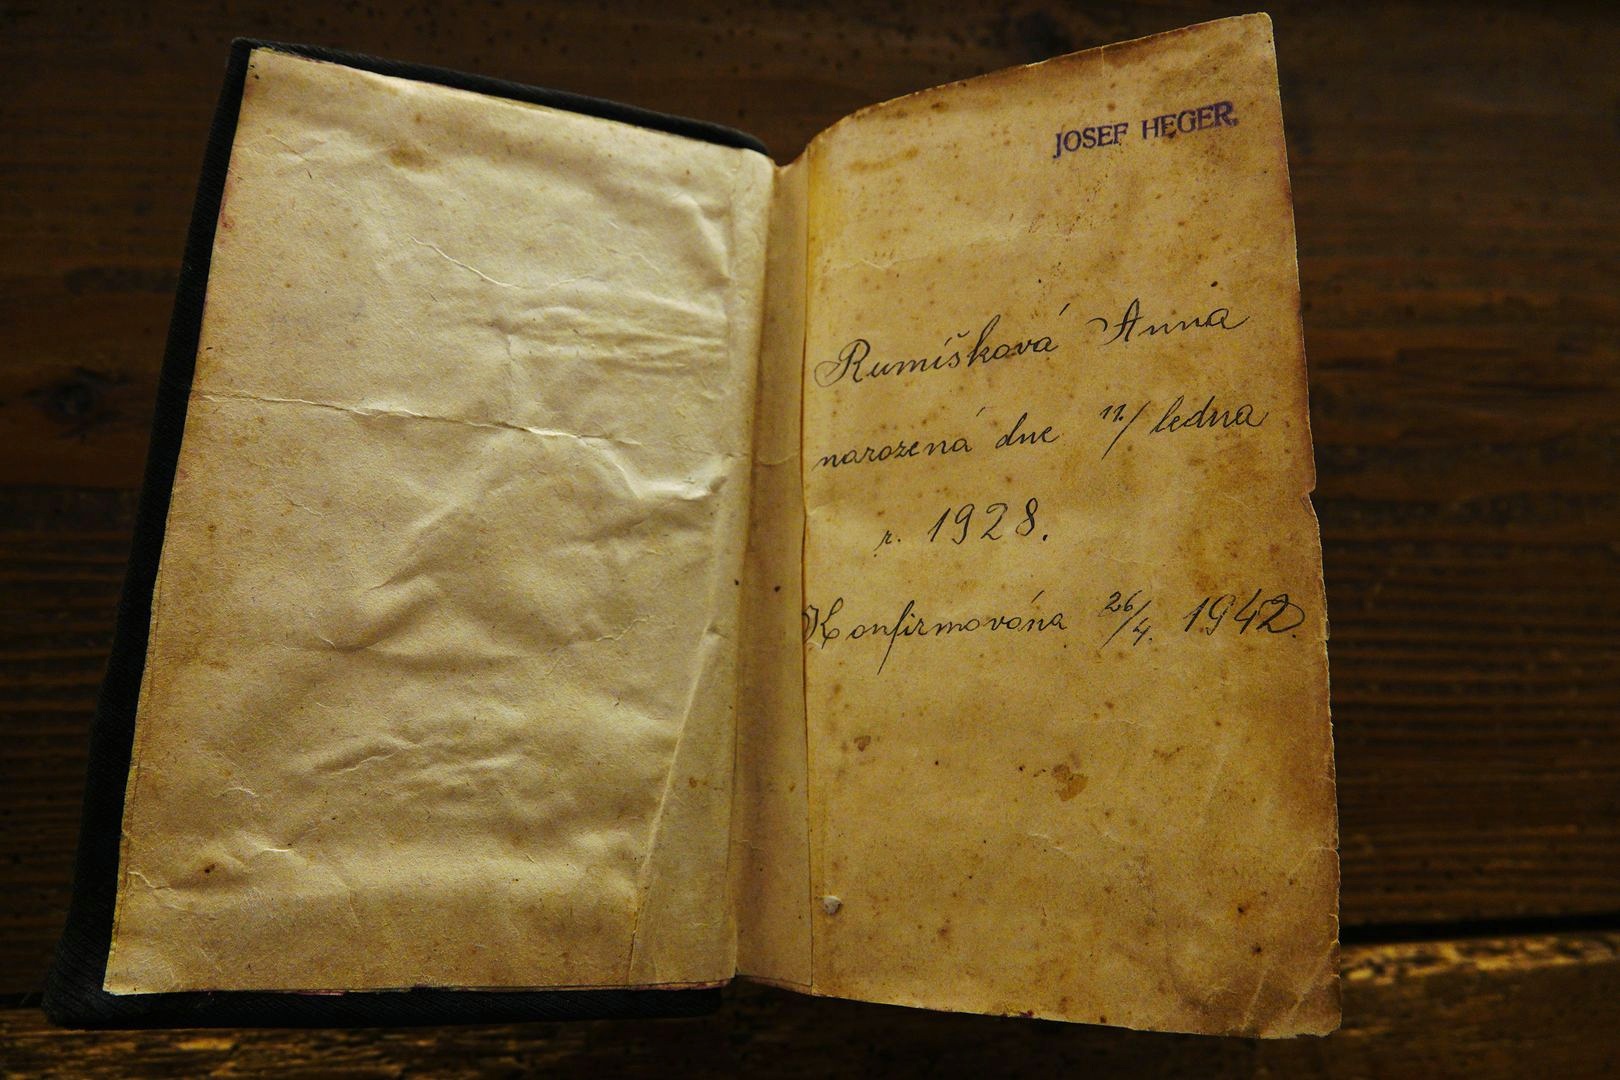 JOSEF HEGER.
Rumíšková Anna
narozená dne 11./ ledna
r. 1928.
Konfirmována 26/4. 1942.